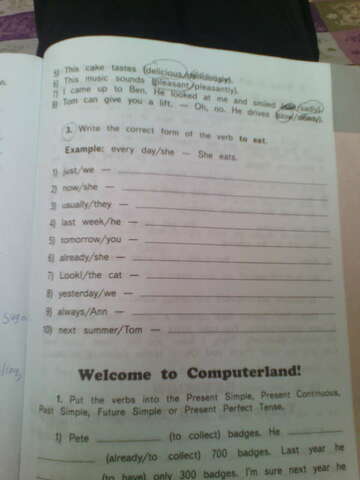 5) This cake tastes (delicious/deliciously).
6) This music sounds (pleasant/pleasantly).
7) I came up to Ben. He looked at me and smiled /sadly).
8) Tom can give you a lift. — Oh, no. He drives
3. Write the correct form of the verb to eat.
Example: every day/she — She eats.
1) just/we —
2) now/she —
3) usually/they —
4) last week/he —
5) tomorrow/you —
6) already/she —
7) Look!/the cat —
8) yesterday/we —
9) always/Ann —
10) next summer/Tom —
Welcome to Computerland!
1. Put the verbs into the Present Simple, Present Continuous,
Past Simple, Future Simple or Present Perfect Tense.
1) Pete (to collect) badges. He
(already/to collect) 700 badges. Last year he
(to have) only 300 badges. I'm sure next year he